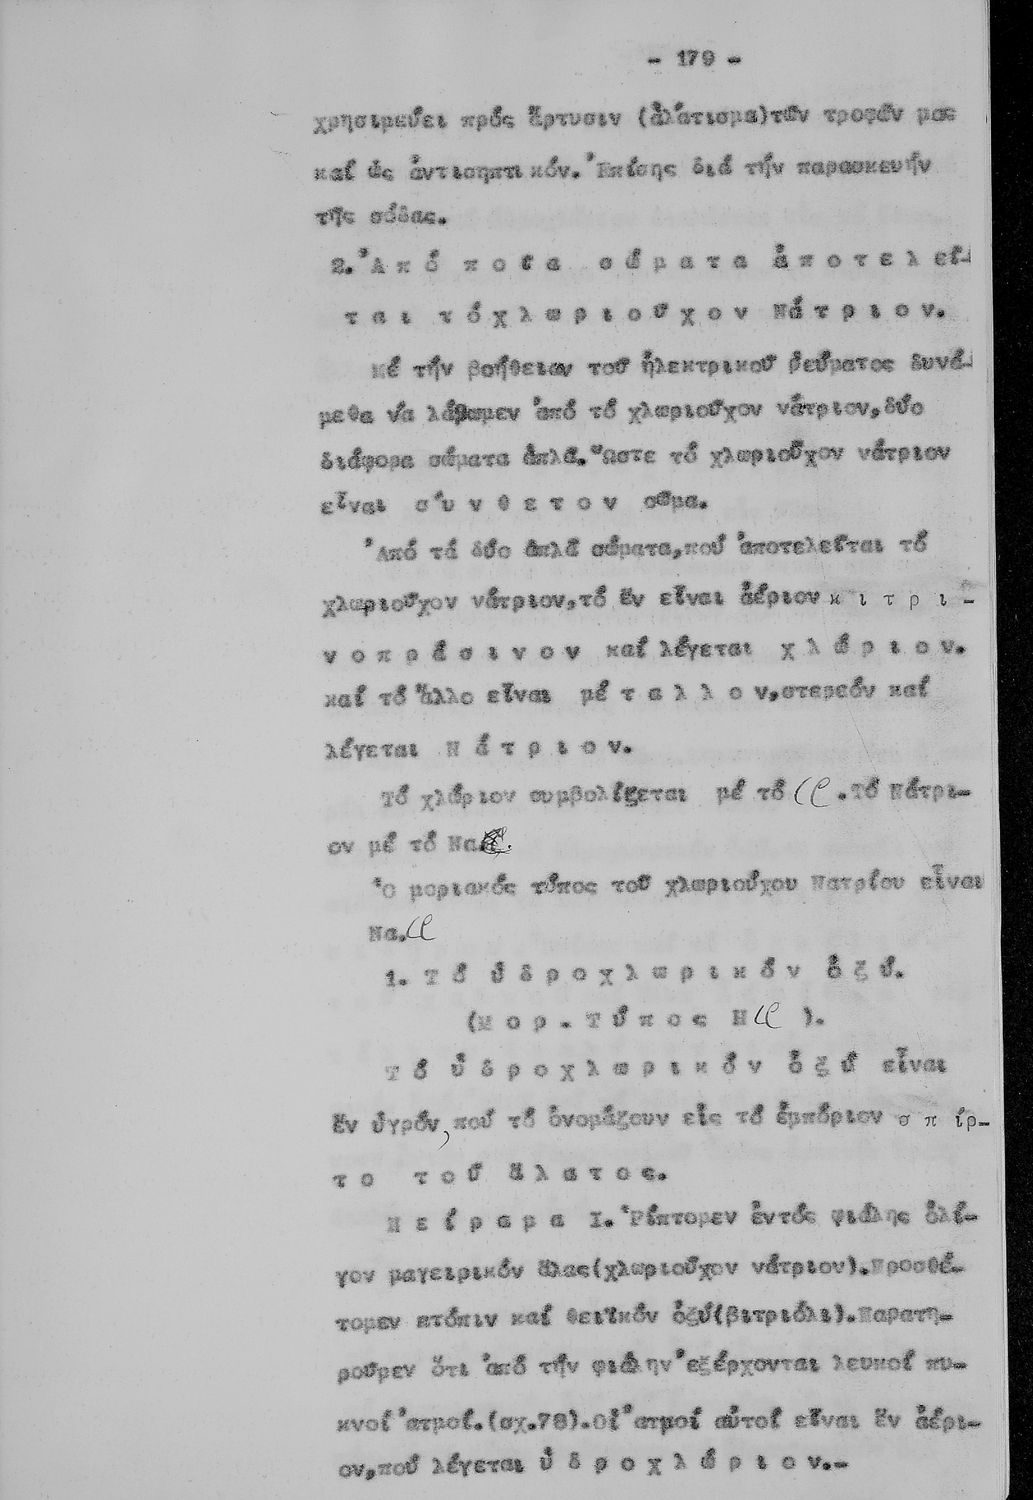 - 179 -
χρησιμεύει πρός ἄρτυσιν (ἁλάτισμα)τῶν τροφῶν μας
καί ὡς ἀντισηπτικόν. Ἐπίσης διά τήν παρασκευήν
τῆς σόδας.
2. Ἀ π ό π ο ῖ α σ ώ μ α τ α ἀ π ο τ ε λ εῖ-
τ α ι τ ό χ λ ω ρ ι ο ῦ χ ο ν Ν ά τ ρ ι ο ν.
Μέ τήν βοήθειαν τοῦ ἠλεκτρικοῦ ρεύματος δυνά-
μεθα νά λάβωμεν ἀπό τό χλωριοῦχον νάτριον,δύο
διάφορα σώματα ἁπλᾶ. Ὥστε τό χλωριοῦχον νάτριον
εἶναι σ ύ ν θ ε τ ο ν σῶμα.
Ἀπό τά δύο ἁπλᾶ σώματα,πού ἀποτελεῖται τό
χλωριοῦχον νάτριον,τό ἕν εἶναι ἀέριον κ ι τ ρ ι -
ν ο π ρ ά σ ι ν ο ν καί λέγεται χ λ ώ ρ ι ο ν.
καί τό ἄλλο εἶναι μέ τ α λ λ ο ν,στερεόν καί
λέγεται Ν ά τ ρ ι ο ν.
Τό χλώριον συμβολίζεται μέ τό Cl .Τό Νάτρι-
ον μέ τό Να.
Ὁ μοριακός τύπος τοῦ χλωριούχου Νατρίου εἶναι
Να.Cl
1. Τ ό ὑ δ ρ ο χ λ ω ρ ι κ ό ν ὀ ξ ύ.
(Μ ο ρ . Τ ύ π ο ς Η Cl ).
Τ ό ὑ δ ρ ο χ λ ω ρ ι κ ό ν ὀ ξ ύ εἶναι
ἕν ὑγρόν, πού τό ὀνομάζουν εἰς τό ἐμπόριον σ π ίρ-
τ ο τ ο ῦ ἅ λ α τ ο ς.
Π ε ί ρ α μ α Ι. Ρίπτομεν ἐντός φιάλης ὀλί-
γον μαγειρικόν ἅλας(χλωριοῦχον νάτριον).Προσθέ-
τομεν κτόπιν καί θειϊκόν ὀξύ(βιτριόλι).Παρατη-
ροῦμεν ὅτι ἀπό τήν φιάλην ἐξέρχονται λευκοί πυ-
κνοί ἀτμοί.(σχ.78).Οἱ ἀτμοί αὐτοί εἶναι ἕν ἀέρι-
ον,πού λέγεται ὑ δ ρ ο χ λ ώ ρ ι ο ν.-